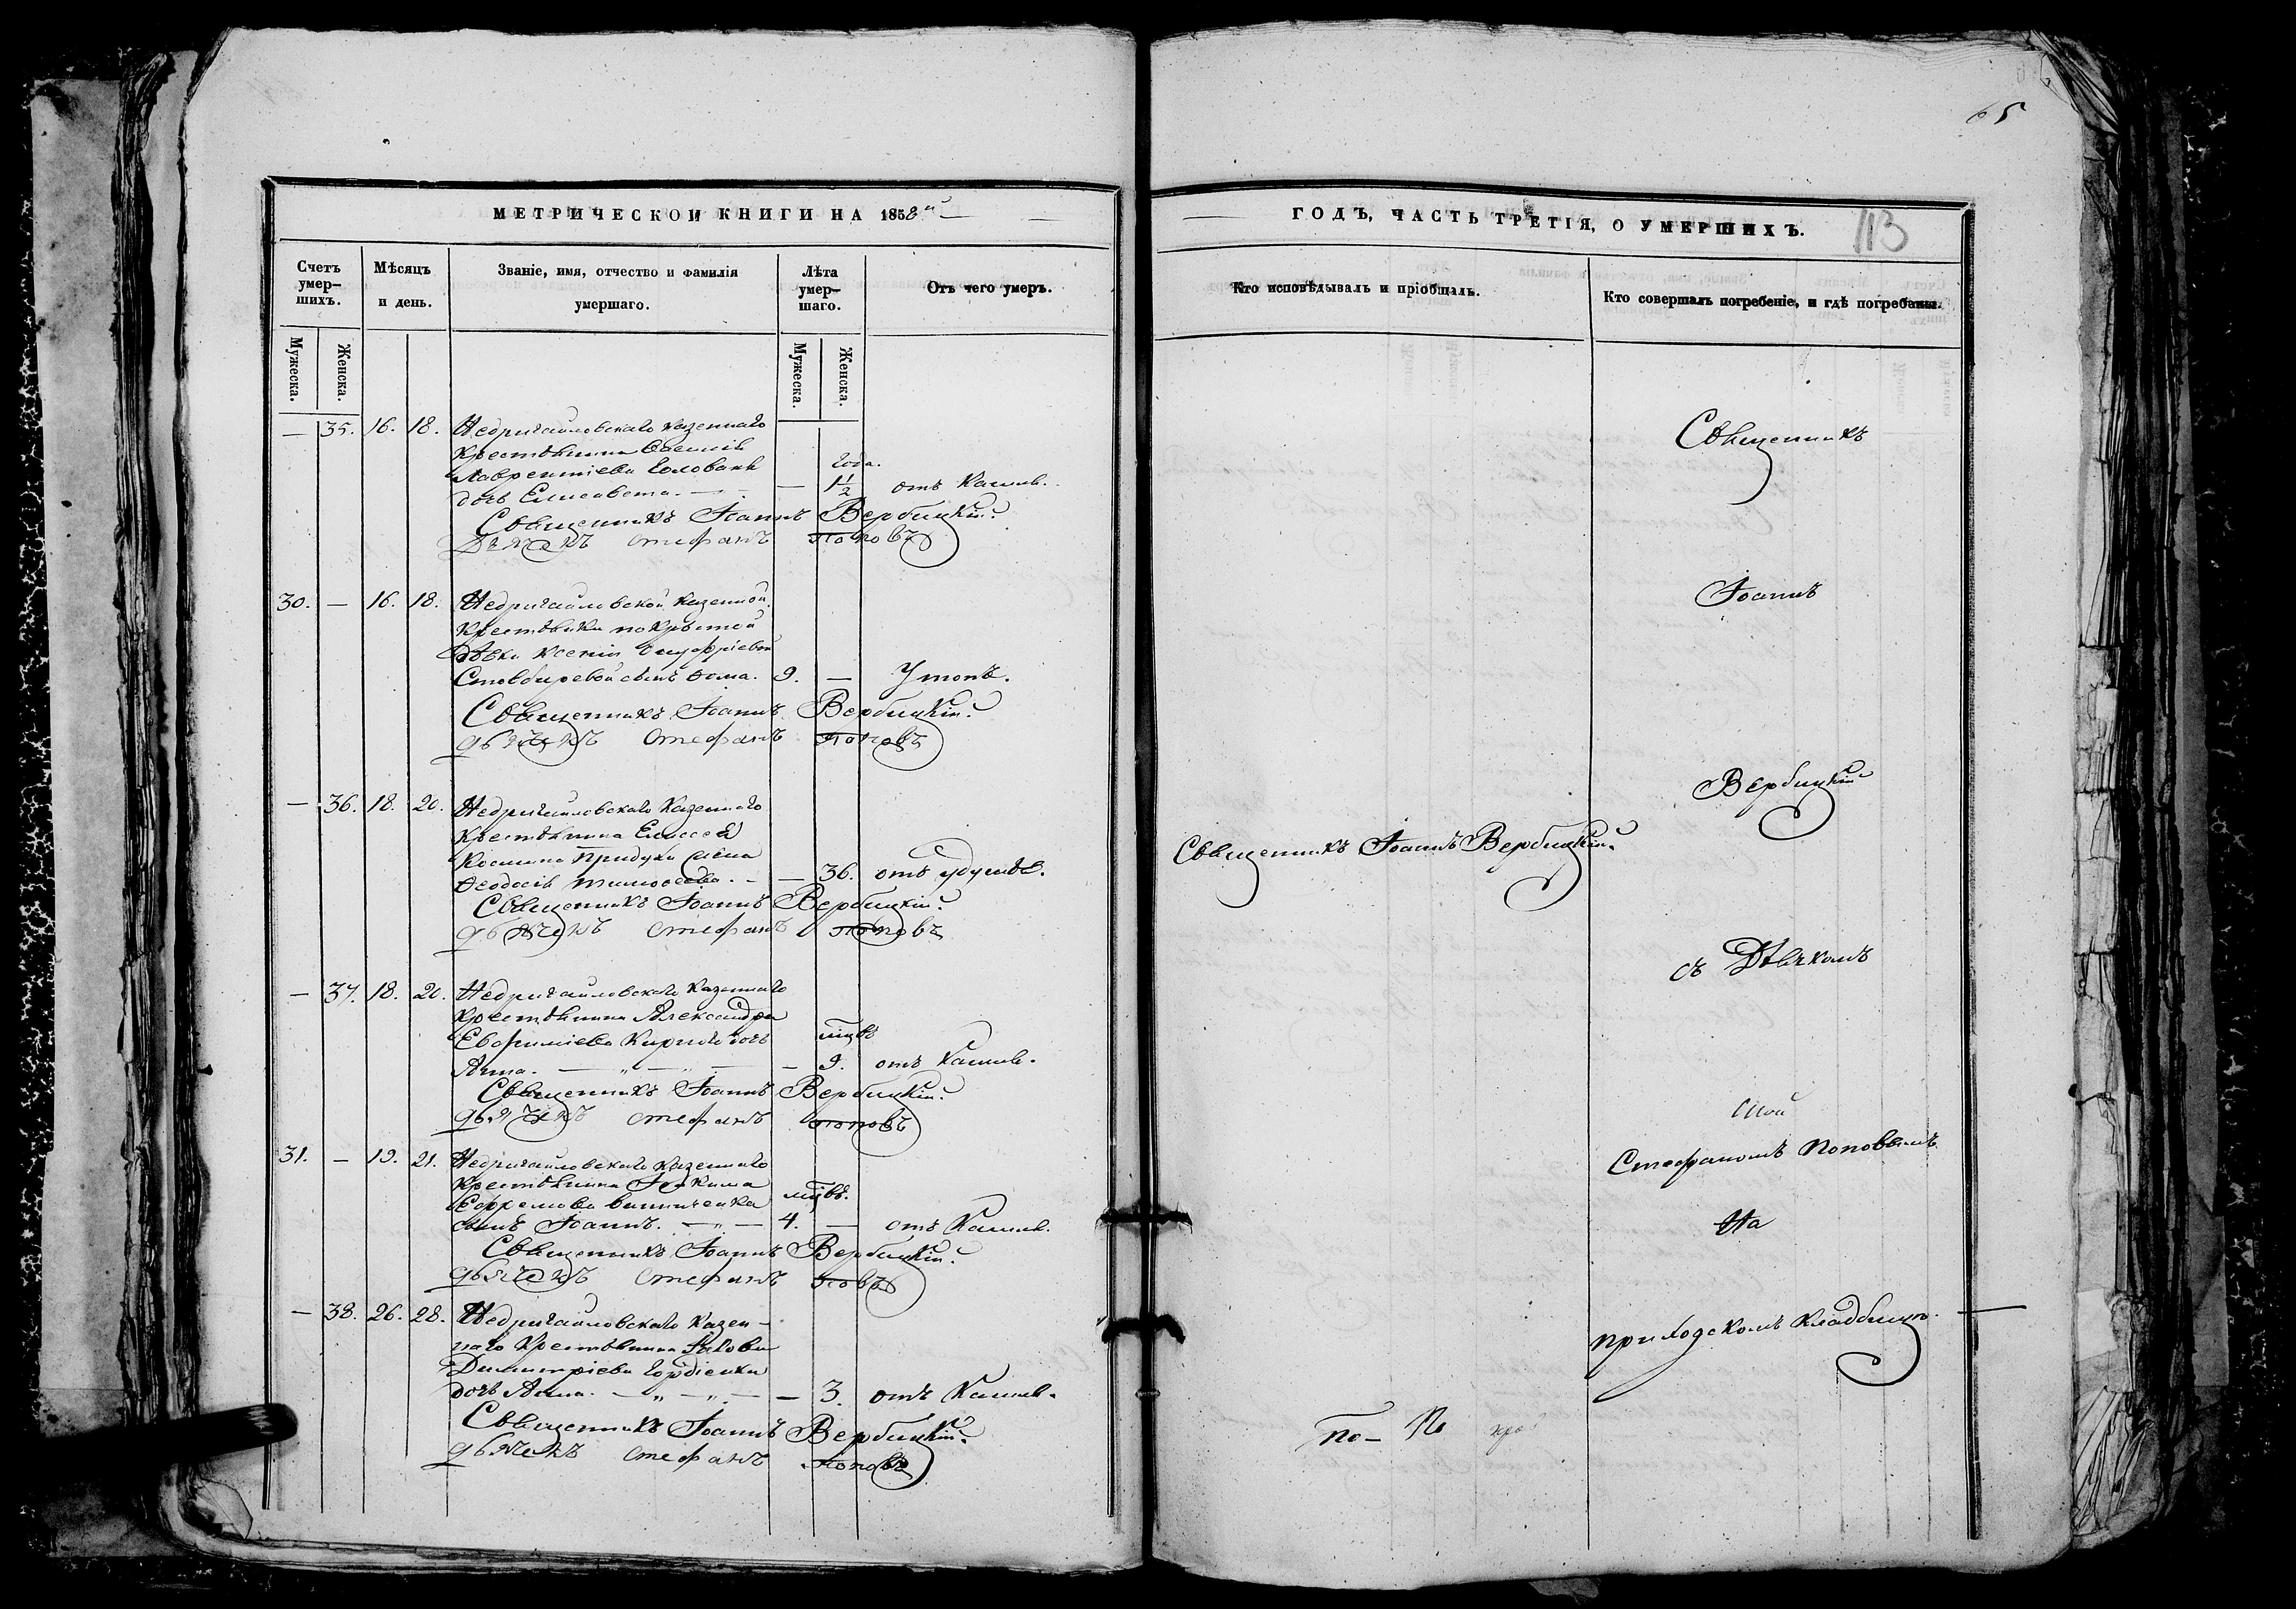 МЕТРИЧЕСКОЙ КНИГИ НА 1858й
Счетъ умер-шихъ.
Мѣсяцъ и день.
Званіе, имя, отчество и фамилія умершаго.
Лѣта умер-шаго.
Отъ чего умеръ.
Мужеска.
Женска.
Мужеска.
Женска.
— 35. 16. 18. Недригайловскаго казеннаго
крестьянина Василія
Лаврентіева Голованя Года.
дочь Елисавета. — — 1 1/2 отъ Кашля.
Священникъ Іоаннъ Вербицкій
Дьячекъ Стефанъ Поповъ
30. — 16. 18. Недригайловской казенной
крестьянки покрытой
дѣвки Ксеніи Онуфріевой
Столбыревой сынъ Ѳома. 9. — Утопъ.
Священникъ Іоаннъ Вербицкій
дьячекъ Стефанъ Поповъ
— 36. 18. 20. Недригайловскаго казеннаго
крестьянина Елисея
Космина Придухи жена
Ѳеодосія Тимоѳеева. — — 36. отъ удушья.
Священникъ Іоаннъ Вербицкій
дьячекъ Стефанъ Поповъ
— 37. 18. 20. Недригайловскаго казеннаго
крестьянина Александра
Евфиміева дочь мцвъ
Анна. — „ — „ — — 9. отъ Кашля.
Священникъ Іоаннъ Вербицкій
дьячекъ Стефанъ Поповъ
31. — 19. 21. Недригайловскаго казеннаго
крестьянина Іоакима
Ефремова Винниченка мцвъ.
сынъ Іоаннъ. — „ — 4. — отъ Кашля.
Священникъ Іоаннъ Вербицкій
дьячекъ Стефанъ Поповъ
— 38. 26. 28. Недригайловскаго казен-
наго крестьянина Іакова
Димитріева Гордіенка
дочь Анна. — „ — „ — — 3. отъ Кашля.
Священникъ Іоаннъ Вербицкій
дьячекъ Стефанъ Поповъ
65
ГОДЪ, ЧАСТЬ ТРЕТІЯ, О УМЕРШИХЪ.
113
Кто исповѣдывалъ и пріобщалъ.
Кто совершалъ погребеніе, и гдѣ погребены.
Священникъ
Іоаннъ
Вербицкій
Священникъ Іоаннъ Вербицкій
съ Дьячкомъ
Стефаномъ Поповымъ
На
приходскомъ кладбищѣ.
по- По